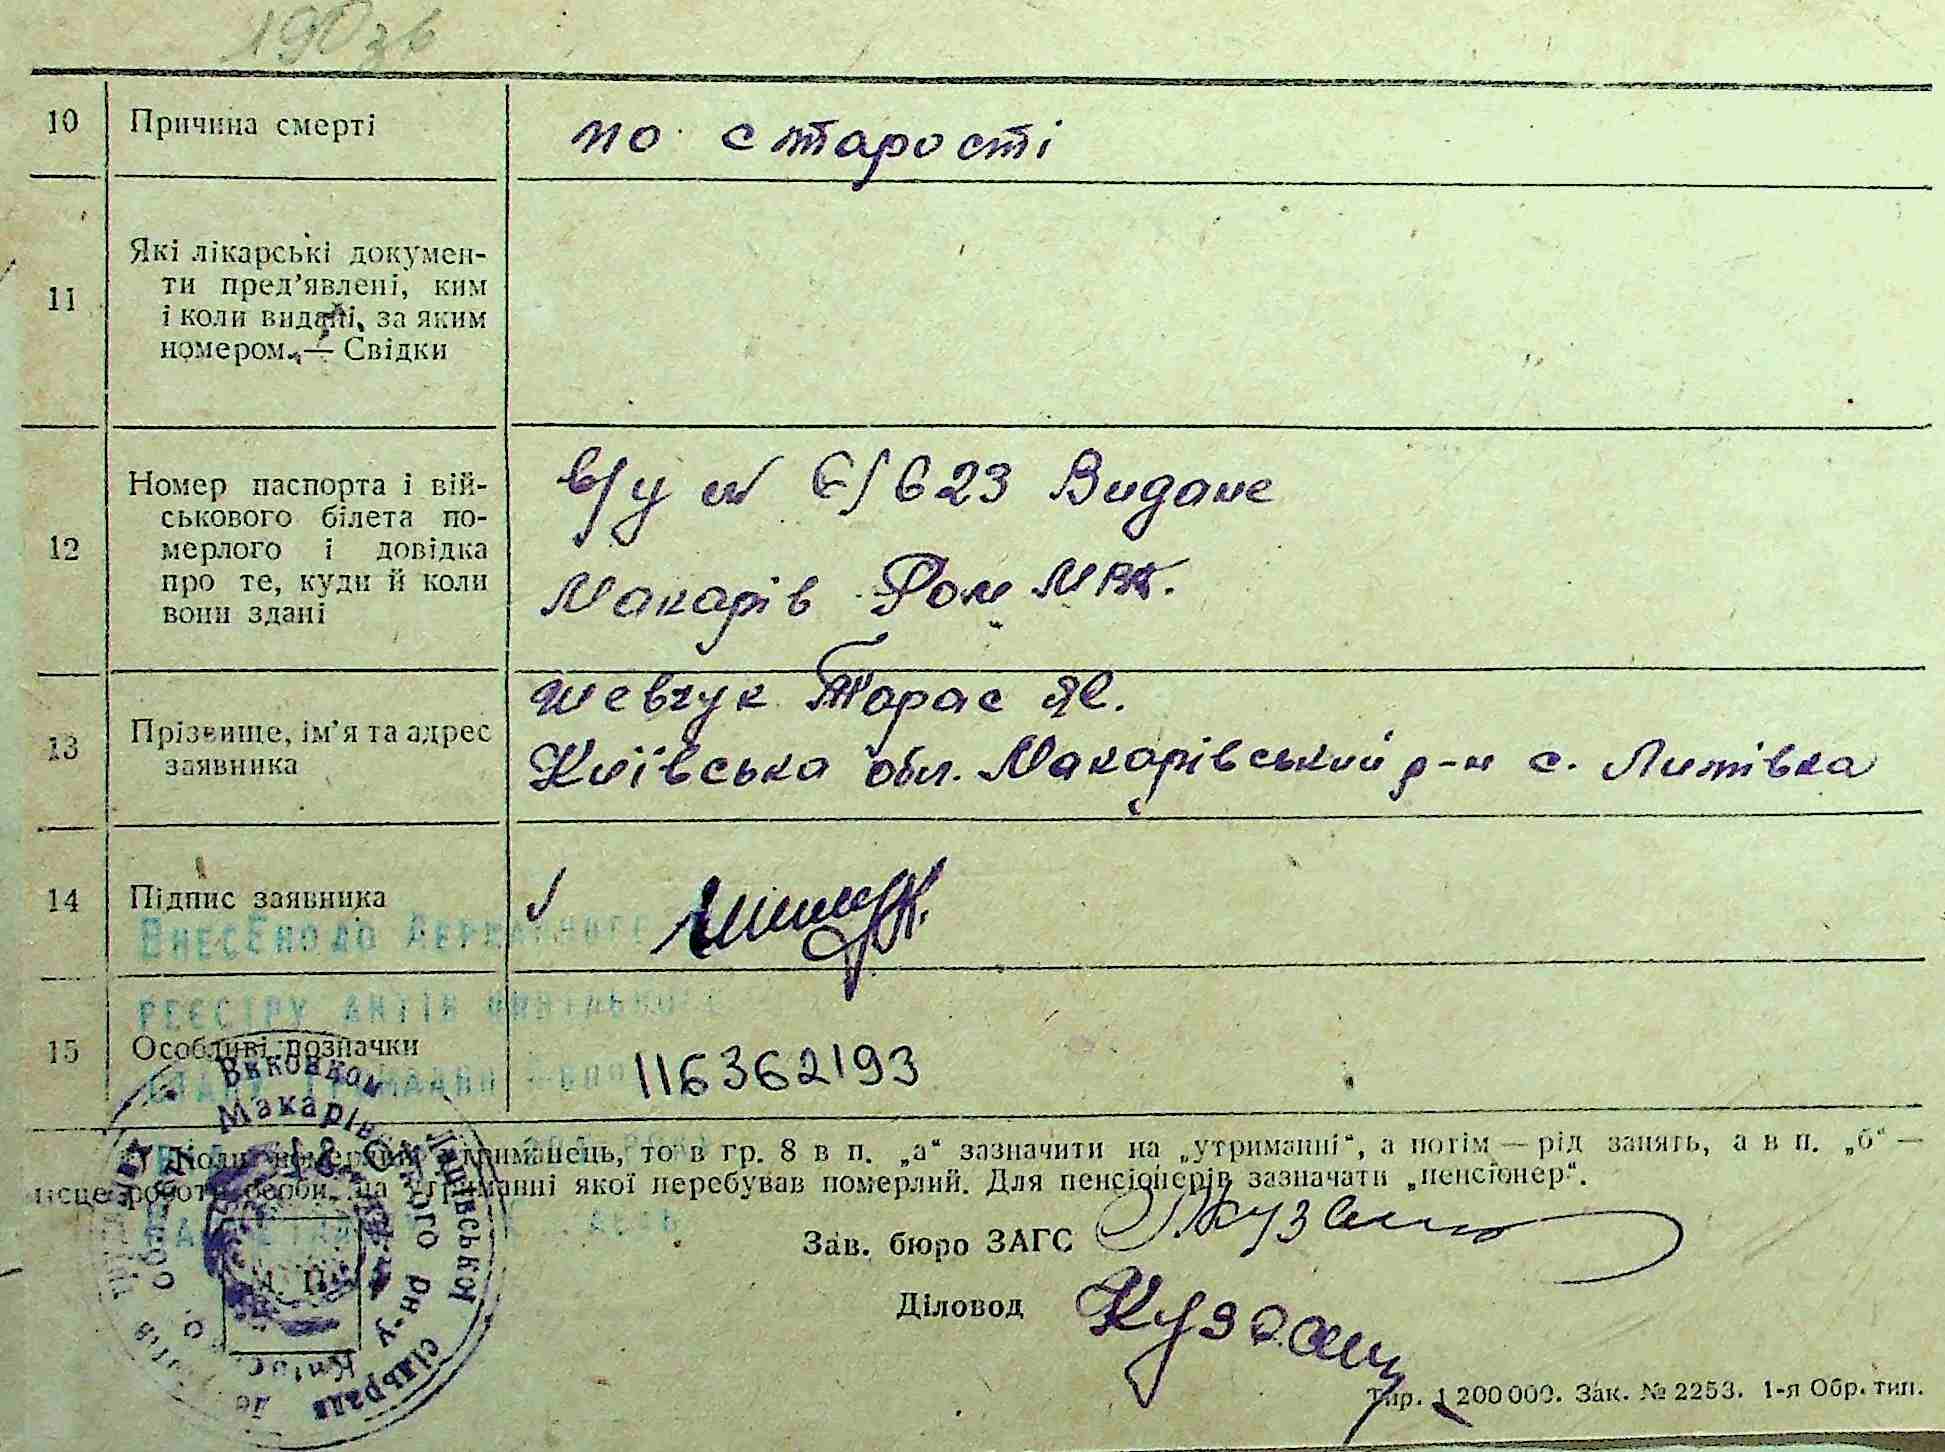 190зв
10 Причина смерті по старості
11 Які лікарські докумен-
ти пред'явлені, ким
і коли видані, за яким
номером. — Свідки
12 Номер паспорта і вій-
ськового білета по-
мерлого і довідка
про те, куди й коли
вони здані
в/у № 6/623 Видане
Макарів Ром МВК.
13 Прізвище, ім'я та адрес
заявника
Шевчук Тарас Як.
Київська обл. Макарівський р-н с. Липівка
14 Підпис заявника
Внесено до Державного
реєстру актів цивільного
стану громадян
15 Особливі позначки 116362193
Виконком Липівської сільради
Макарівського р-ну
М. П.
померлий утриманець, то в гр. 8 в п. „а“ зазначити на „утриманні“, а потім — рід занять, а в п. „б“ —
місце роботи особи, на утриманні якої перебував померлий. Для пенсіонерів зазначати „пенсіонер“.
Зав. бюро ЗАГС
Діловод
Тир. 1 200 000. Зак. № 2253. 1-я Обр. тип.